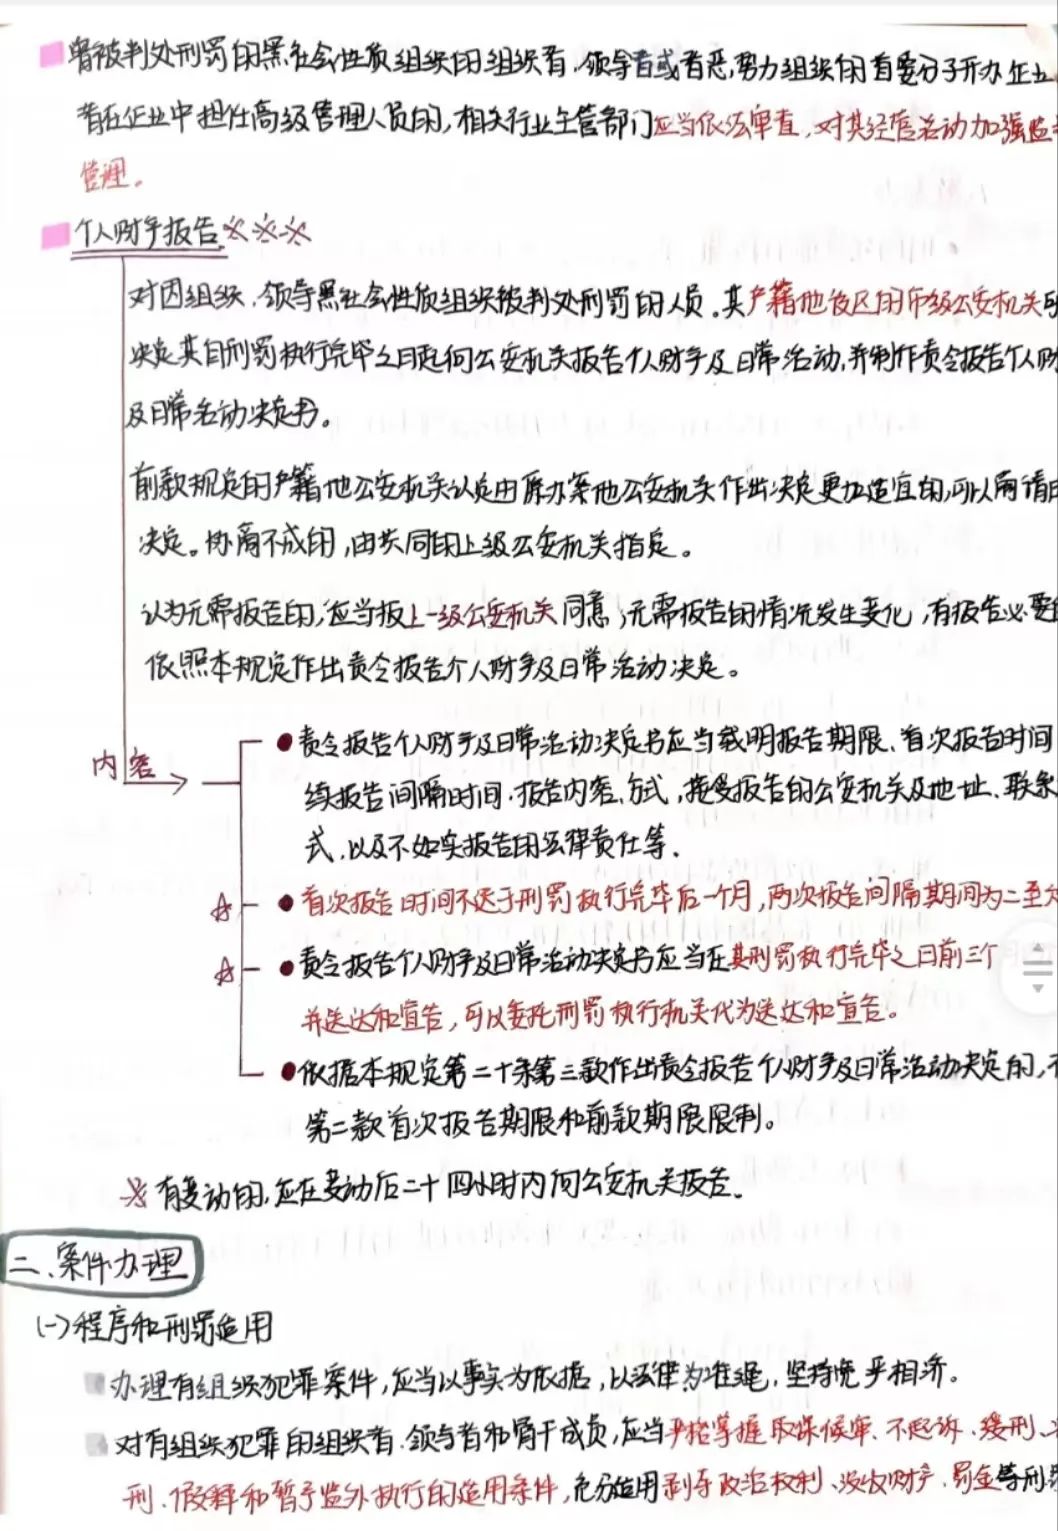 曾被判处刑罚的黑社会性质组织的组织者、领导者或者恶势力组织的首要分子开办企业
者在企业中担任高级管理人员的,相关行业主管部门应当依法审查,对其经营活动加强监
管理。
个人财产报告※※※
对因组织、领导黑社会性质组织被判处刑罚的人员,其户籍地设区的市级公安机关
决定其自刑罚执行完毕之日起向公安机关报告个人财产及日常活动,并制作责令报告个人财
及日常活动决定书。
前款规定的户籍地公安机关认定由原办案地公安机关作出决定更加适宜的,可以商请由
决定。协商不成的,由共同的上级公安机关指定。
认为无需报告的,应当报上一级公安机关同意;无需报告的情况发生变化,有报告必要的
依照本规定作出责令报告个人财产及日常活动决定。
内容
责令报告个人财产及日常活动决定书应当载明报告期限、首次报告时间
续报告间隔时间、报告内容、方式,接受报告的公安机关及地址、联系
式,以及不如实报告的法律责任等。
☆ 首次报告时间不迟于刑罚执行完毕后一个月,两次报告间隔期间为二至六
☆ 责令报告个人财产及日常活动决定书应当在其刑罚执行完毕之日前三个
并送达和宣告,可以委托刑罚执行机关代为送达和宣告。
依据本规定第二十条第三款作出责令报告个人财产及日常活动决定的,不
第二款首次报告期限和前款期限限制。
※ 有变动的,应在变动后二十四小时内向公安机关报告。
二、案件办理
(一)程序和刑罚适用
办理有组织犯罪案件,应当以事实为依据,以法律为准绳,坚持宽严相济。
对有组织犯罪的组织者、领导者和骨干成员,应当严格掌握取保候审、不起诉、缓刑、
刑、假释和暂予监外执行的适用条件,充分适用剥夺政治权利、没收财产、罚金等刑罚